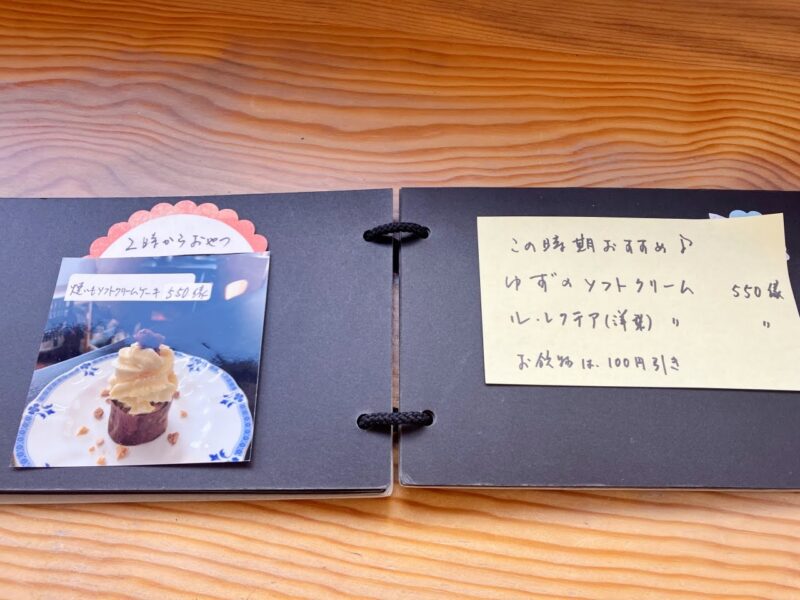 2時からおやつ
焼いもソフトクリームケーキ 550様
この時期おすすめ♪
ゆずのソフトクリーム 550様
ル・レクチア(洋梨) 〃 〃
お飲物は、100円引き